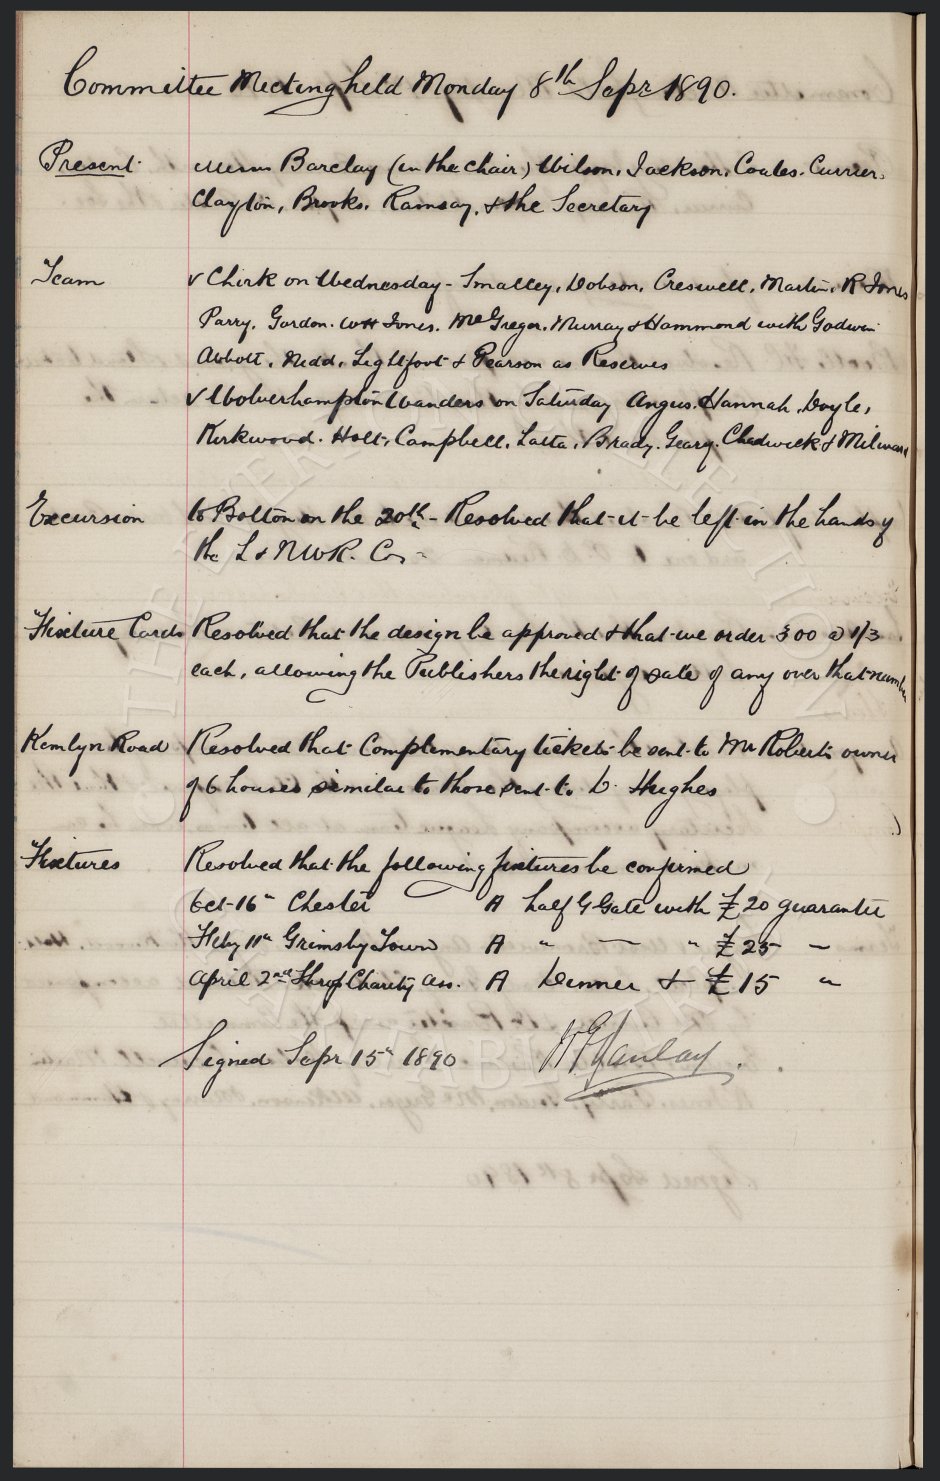 Committee Meeting held Monday 8th Sepr 1890.
Present Messrs Barclay (in the chair) Wilson, Jackson, Coates, Currier,
Clayton, Brooks, Ramsay, & the Secretary
Team v Chirk on Wednesday - Smalley, Dobson, Creswell, Martin, R Jones
Parry, Gordon, WH Jones, McGregor, Murray & Hammond with Godwin
Abbott, Nidd, Lightfoot & Pearson as Reserves
v Wolverhampton Wanders on Saturday Angus, Hannah, Doyle,
Kirkwood, Holt, Campbell, Latta, Brady, Geary, Chadwick & Milward
Excursion to Bolton on the 20th - Resolved that it be left in the hands of
the L & NWR. Co -
Fixture Cards Resolved that the design be approved & that we order 300 @ 1/3
each, allowing the Publishers the right of sale of any over that number
Kemlyn Road Resolved that Complementary tickets be sent to Mr Roberts owner
of 6 houses similar to those sent to D. Hughes
Fixtures Resolved that the following fixtures be confirmed
Oct 16th Chester A half G Gate with £20 guarantee
Feby 11th Grimsby Town A " — " £25 "
April 2nd Shrop Charity Ass. A Dinner & £15 "
Signed Sepr 15th 1890 Barclay.